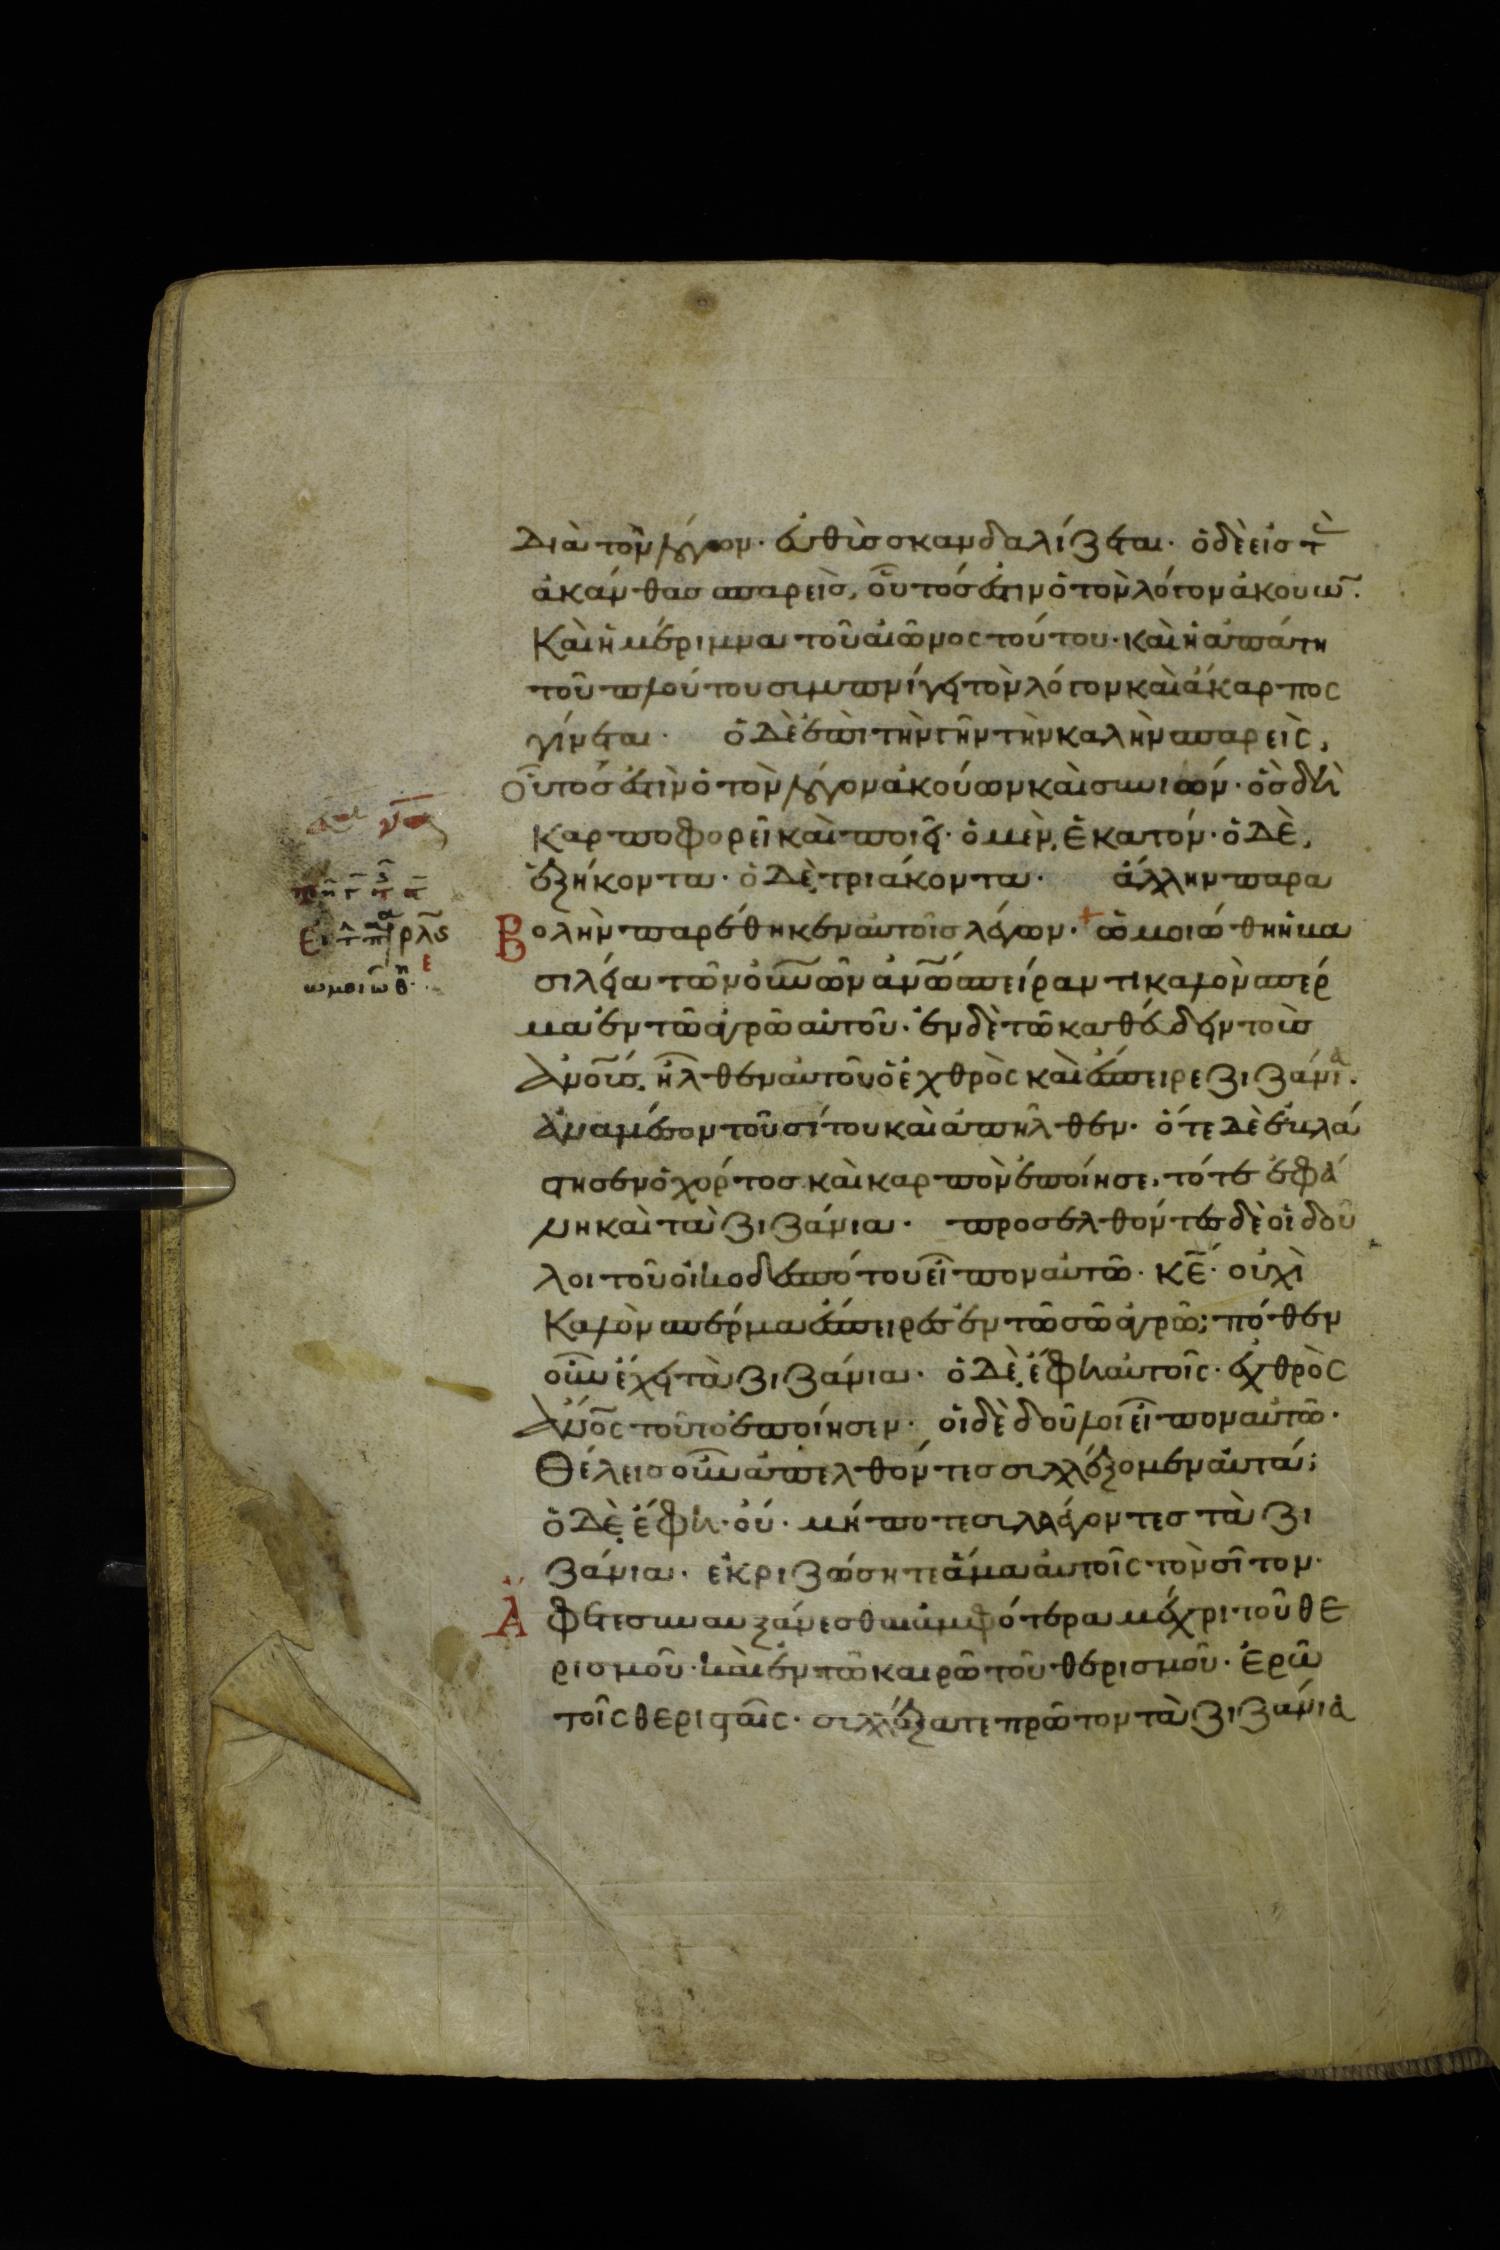 διὰ τὸν λόγον· εὐθὺς σκανδαλίζεται· ὁ δὲ εἰς τ̀
ἀκάνθας σπαρεὶς, οὗτός ἐστιν ὁ τὸν λόγον ἀκουω̃·
Καὶ ἡ μέριμνα τοῦ αἰῶνος τούτου· καὶ ἡ ἀπάτη
τοῦ πλούτου συμπνίγει τὸν λόγον καὶ ἄκαρπος
γίνεται· ὁ δὲ ἐπὶ τὴν γῆν τὴν καλὴν σπαρεὶς,
οὗτός ἐστὶν ὁ τὸν λόγον ἀκούων καὶ συνιών· ὃς δὴ
καρποφορεῖ καὶ ποιεῖ· ὁ μὲν, ἑκατόν· ὁ δὲ,
ἑξήκοντα· ὁ δὲ, τριάκοντα· ἄλλην παρα
Βολὴν παρέθηκεν αὐτοῖς λέγων· + ὡμοιώθη ἡ βα
σιλεία τῶν οὐνῶν ἀνω̃ σπείραντι καλὸν σπέρ
μα ἐν τῶ ἀγρῶ αὐτοῦ· ἐν δὲ τῶ καθεύδειν τοὺς
ἀνους, ἦλθεν αὐτοῦ ὁ ἐχθρὸς καὶ ἔσπειρε ζιζάνια·
ἀναμέσον τοῦ σίτου καὶ ἀπῆλθεν· ὅτε δὲ ἐβλά
στησεν ὁ χόρτος καὶ καρπὸν ἐποίησε, τότε ἐφά
νη καὶ τὰ ζιζάνια· προσελθόντες δὲ οἱ δοῦ
λοι τοῦ οἰκοδεσπότου εἶπον αὐτῶ· κε̄· οὐχὶ
Καλὸν σπέρμα ἔσπειρες ἐν τῶ σῶ ἀγρῶ; πόθεν
οὖν ἔχει τὰ ζιζάνια· ὁ δὲ, ἔφη αὐτοῖς· ἐχθρὸς
ἀνος τοῦτο ἐποίησεν· οἱ δὲ δοῦλοι εἶπον αὐτῶ·
Θέλεις οὖν ἀπελθόντες συλλέξομεν αὐτά;
ὁ δὲ, ἔφη· οὔ· μήποτε συλλέγοντες τὰ ζι
ζάνια· ἐκριζώσητε ἅμα αὐτοῖς τὸν σῖτον·
Ἄφετε συναυξάνεσθαι ἀμφότερα μέχρι τοῦ θε
ρισμοῦ· καὶ ἐν τῶ καιρῶ τοῦ θερισμοῦ· ἐρῶ
τοῖς θερισταῖς· συλλέξατε πρῶτον τὰ ζιζάνια
ρλς
ε
ωμοιωθη·